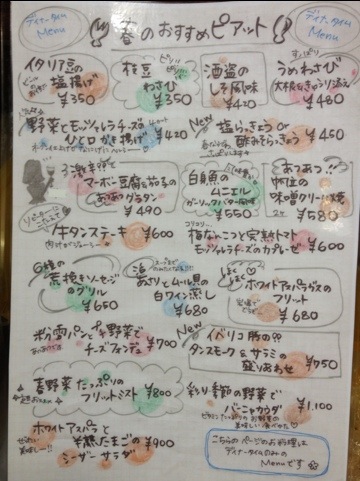 ディナータイム
Menu
春のおすすめピアット
ディナータイム
Menu
イタリア豆の
塩揚げ
¥350
枝豆
わさび
¥350
酒盗の
しそ風味
¥420
さっぱり
うめわさび
大根&きゅうり添え
¥480
野菜とモッツァレラチーズの
ひと口かき揚げ
¥420
New
塩らっきょう or
酢みそらっきょう
¥450
激辛
マーボー豆腐と茄子の
あつあつグラタン
¥490
白身魚の
ムニエル
ガーリックバター風味
¥550
あつあつ!!
帆立の
味噌クリーム焼
2ヶ
¥580
リピーターに
牛タンステーキ
¥600
肉汁がジューシー
コリコリ
梅なんこつと完熟トマト
モッツァレラチーズのカプレーゼ
¥600
6種の
荒挽きソーセージ
のグリル
¥650
あさりとムール貝の
白ワイン蒸し
¥680
ほくほく
ホワイトアスパラガスの
フリット
¥680
粉雪パンと
野菜で
チーズフォンデュ
¥700
New
イベリコ豚の
タンスモーク&サラミの
盛りあわせ
¥750
春野菜たっぷりの
フリットミスト
¥800
彩り季節の野菜で
バーニャカウダ
¥1,100
ビタミンたっぷりのお野菜の
美味しい食べかた♡
ホワイトアスパラと
半熟たまごの
シーザーサラダ
¥900
ぜったい
美味しい〜!!
こちらのページのお料理は
ディナータイムのみの
Menuです☆